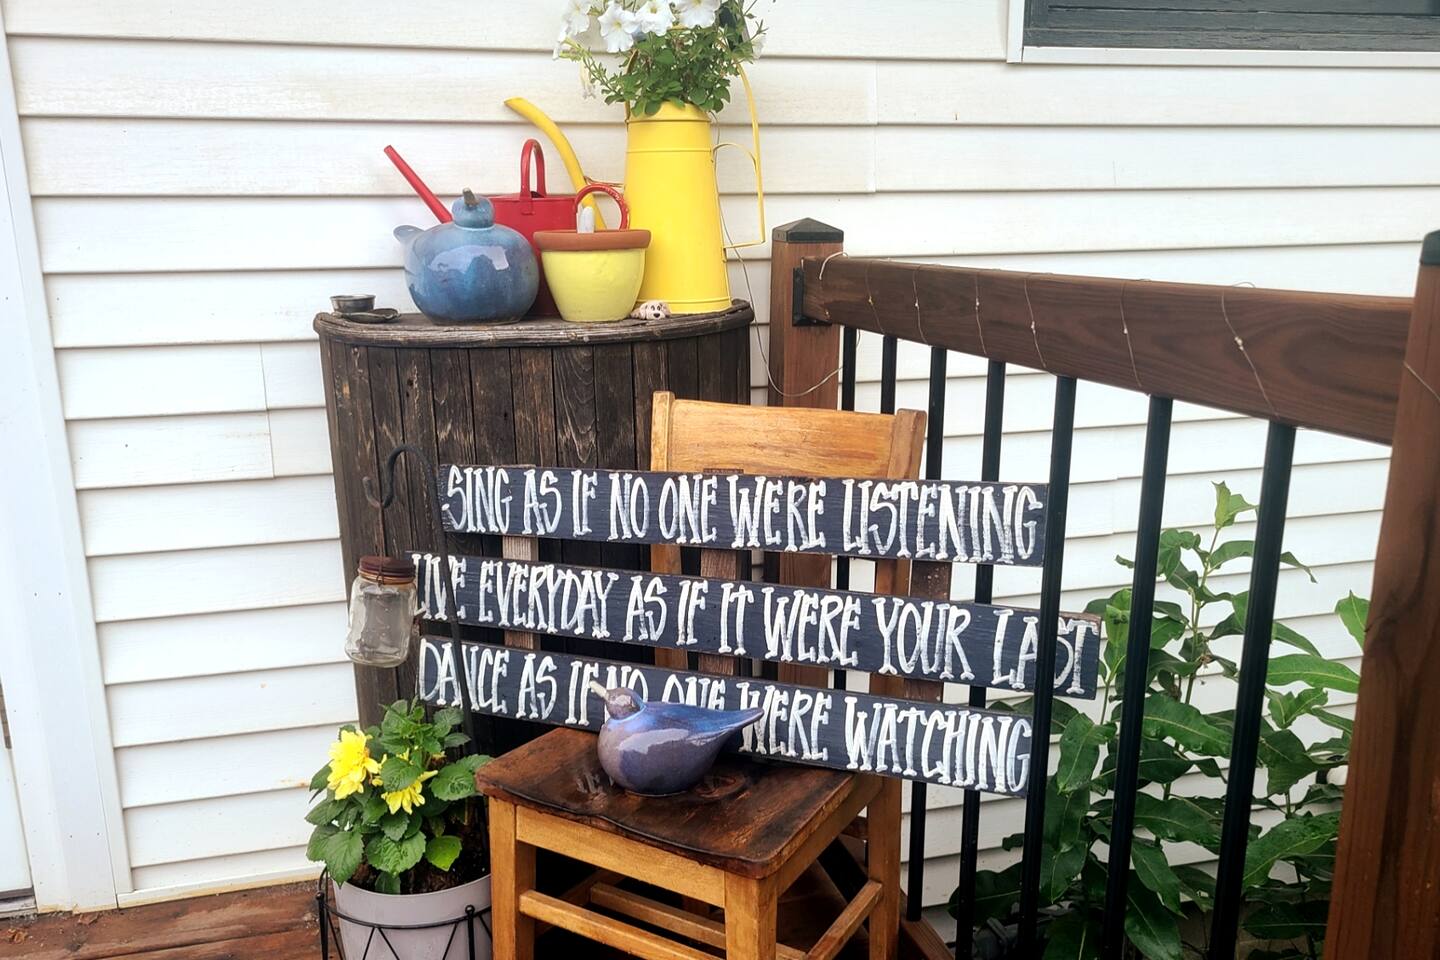 SING AS IF NO ONE WERE LISTENING
LIVE EVERYDAY AS IF IT WERE YOUR LAST
DANCE AS IF NO ONE WERE WATCHING